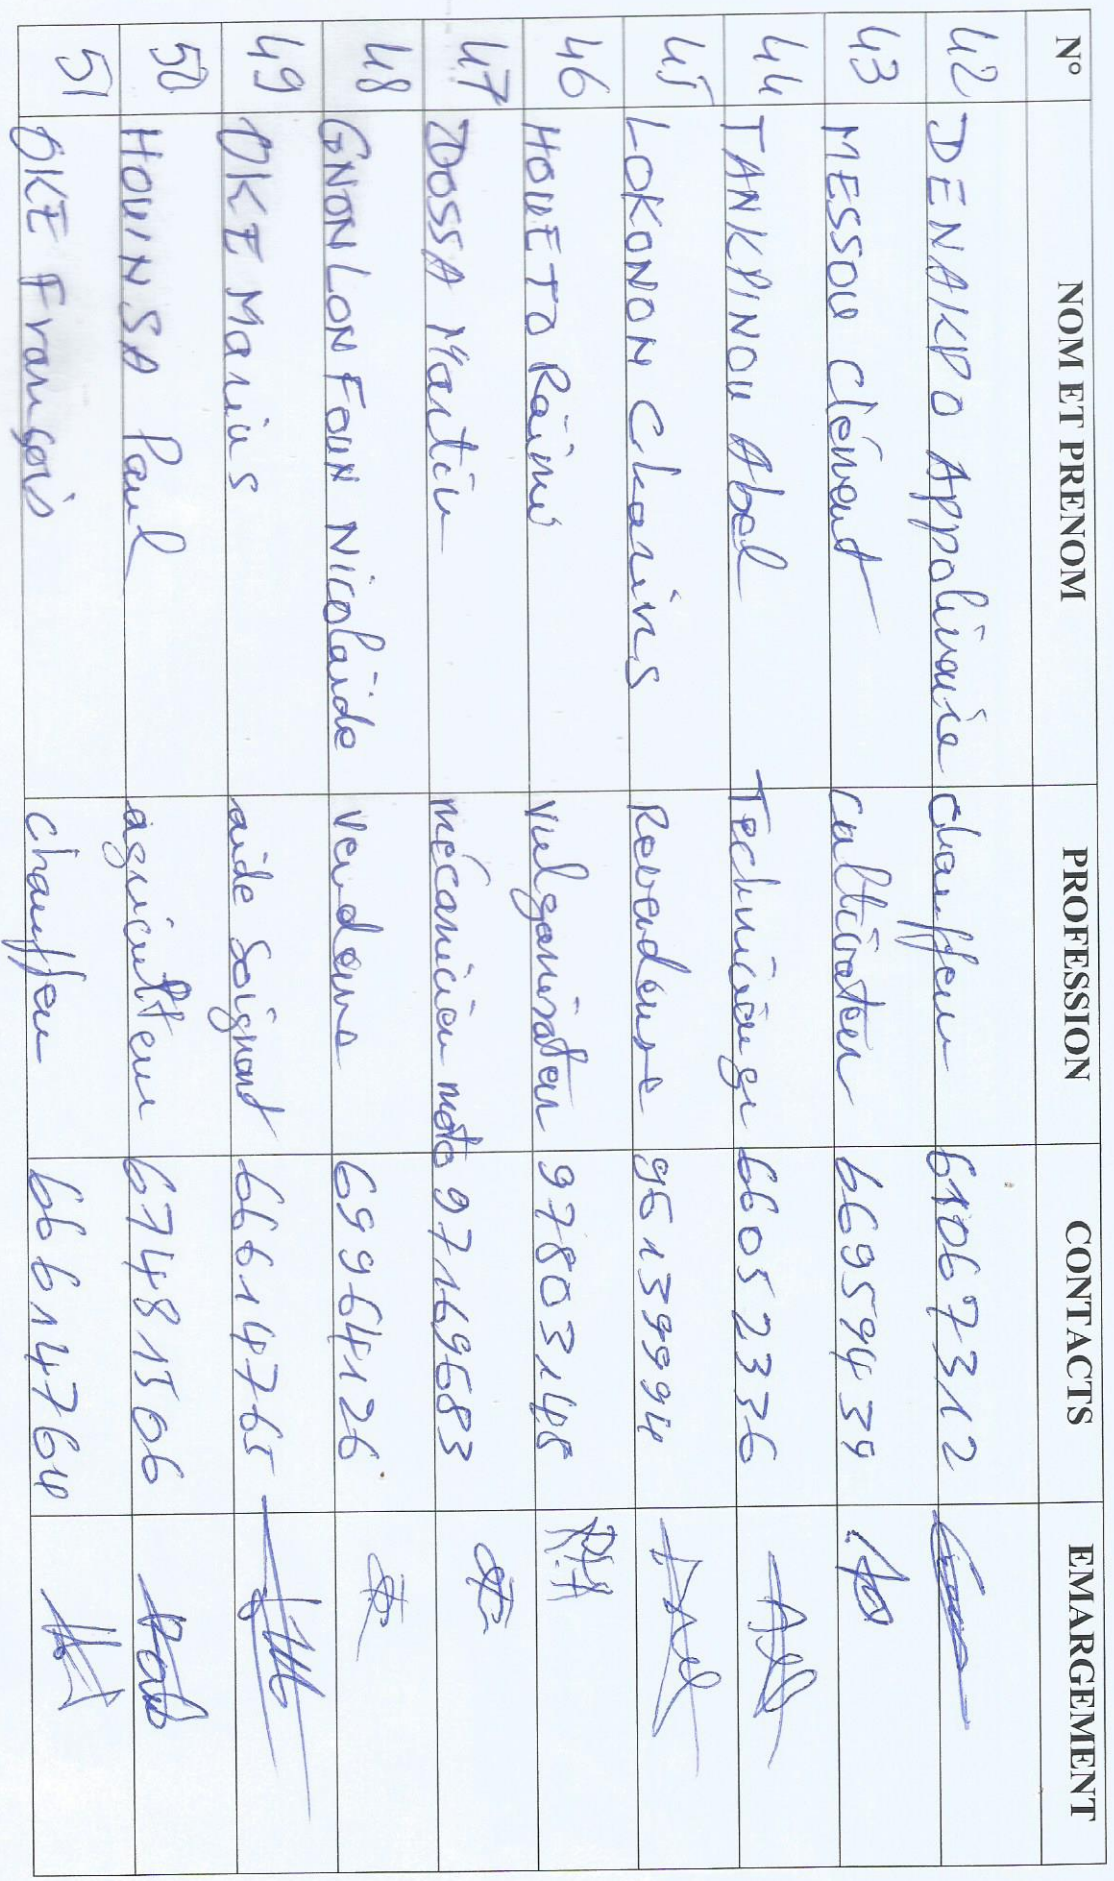 N° NOM ET PRENOM PROFESSION CONTACTS EMARGEMENT
42 DENAKPO Appolinaire chauffeur 61067312
43 MESSOU Clément Cultivateur 66959439
44 TANKPINOU Abel 66052336
45 LOKONON Charius Revendeur 95139994
46 HOUETO Raimi Vulgarisateur 97803148
47 DOSSA Martin mécanicien moto 97169683
48 GNONLONFOUN Nicolaïde Vendeur 69964126
49 OKE Marius aide Soignant 66614765
50 HOUINSA Paul agriculteur 67481506
51 OKE François chauffeur 66614764